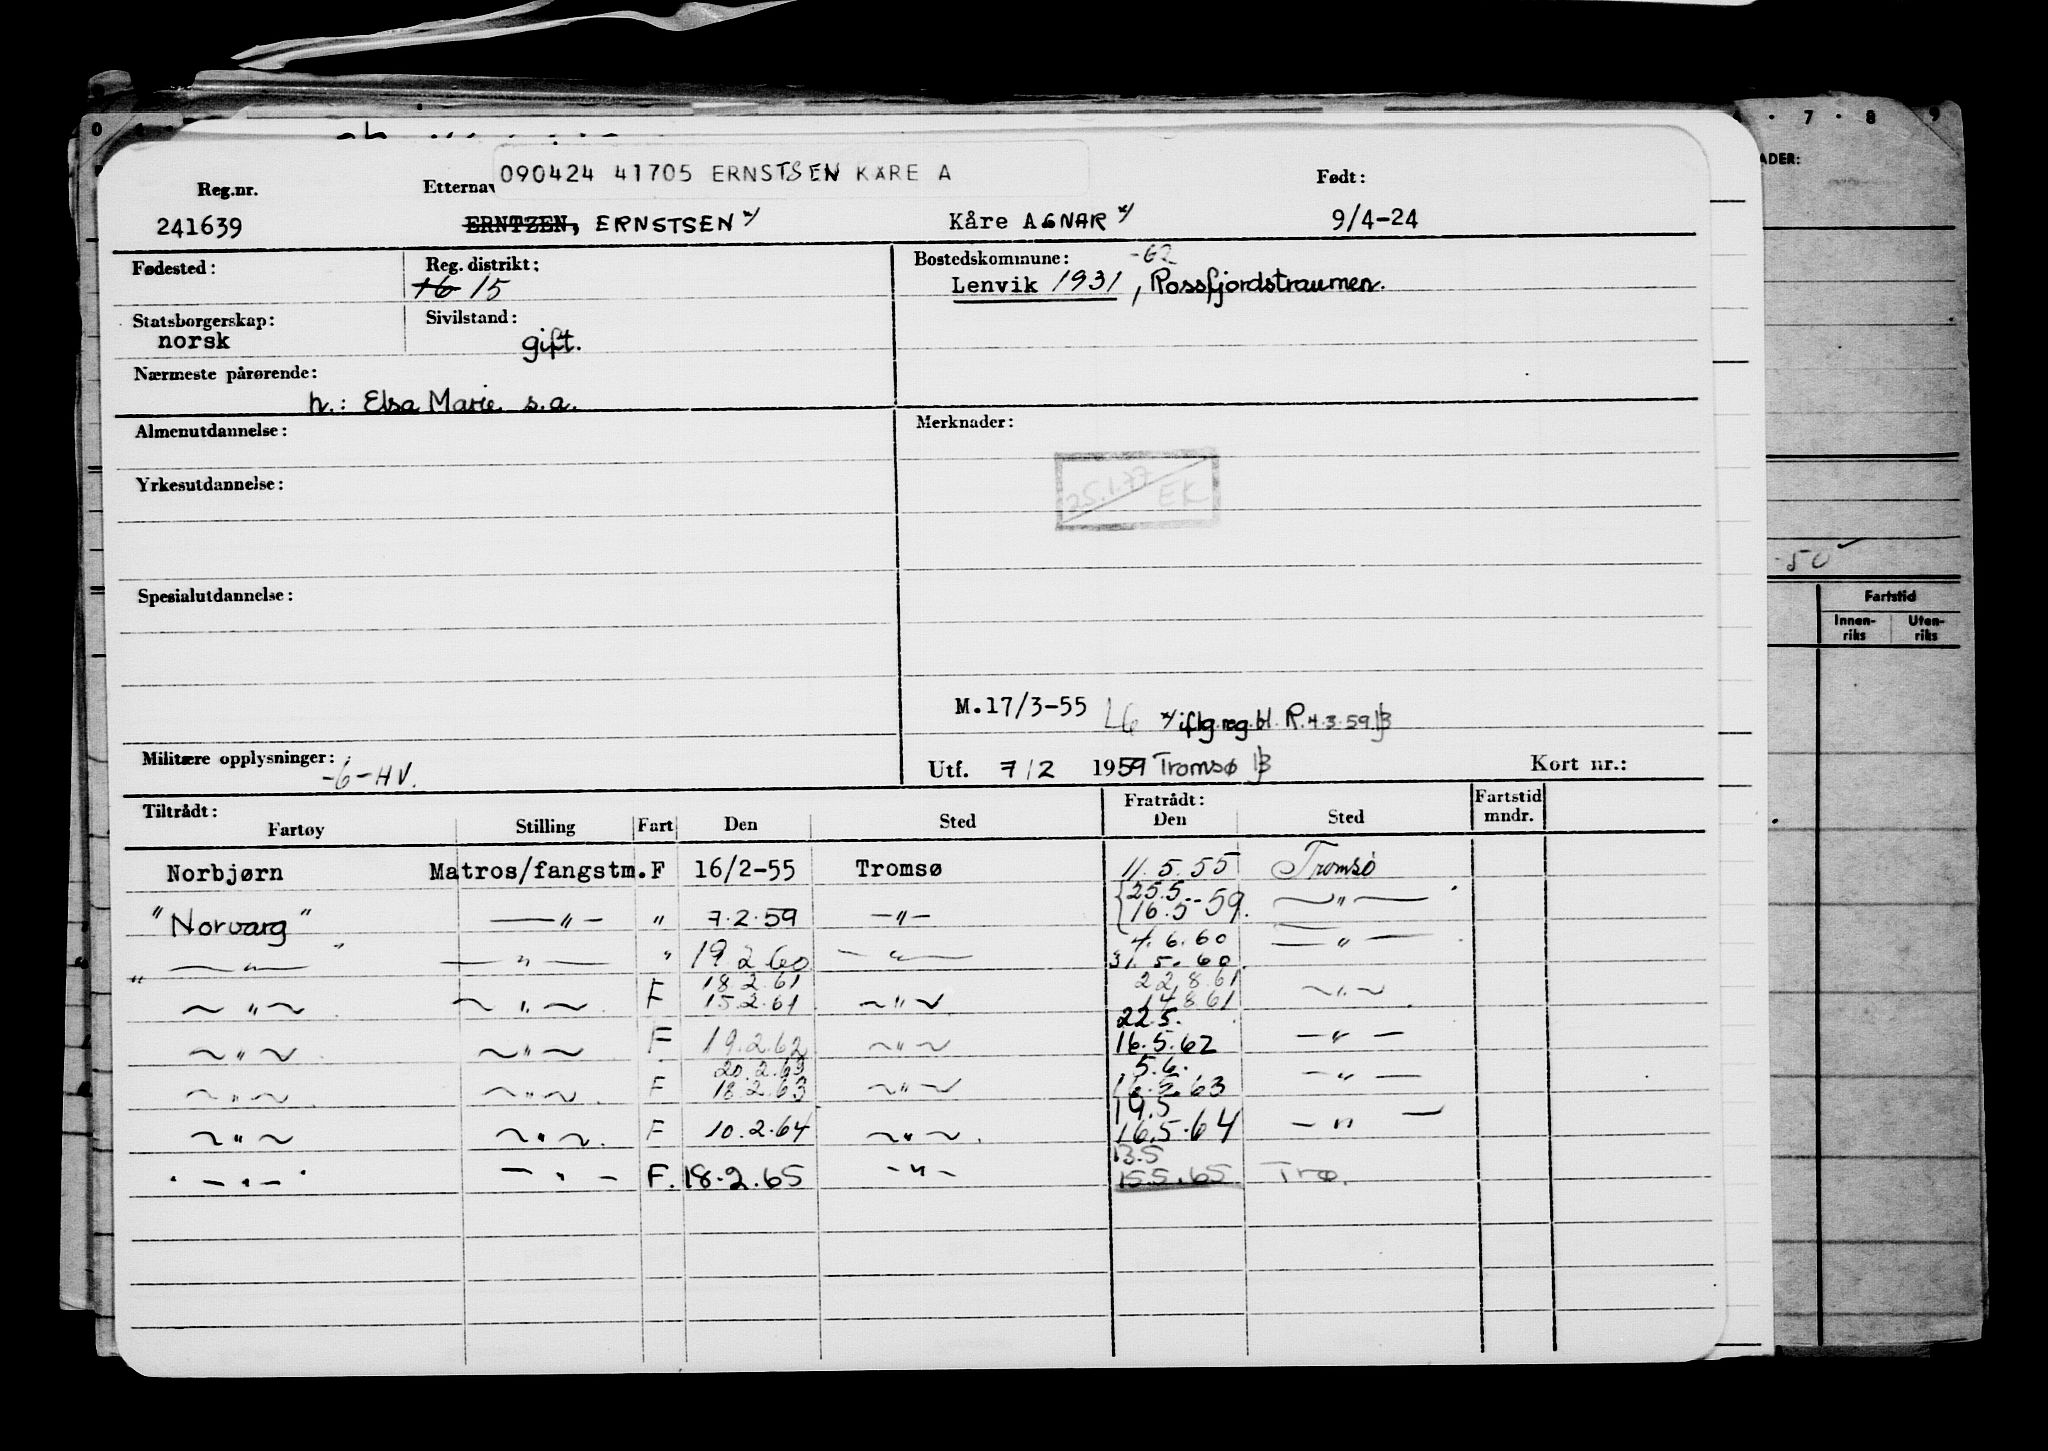 090424 41705 ERNSTSEN KÅRE A
Reg.nr. Etternav Født:
241639 ERNTZEN, ERNSTSEN x/ Kåre AGNAR x/ 9/4-24
Fødested: Reg. distrikt: Bostedskommune: -62
16 15 Lenvik 1931, Rossfjordstraumen.
Statsborgerskap: Sivilstand:
norsk gift.
Nærmeste pårørende:
h.: Elsa Marie s.a.
Almenutdannelse: Merknader:
25.1.77 EK
Yrkesutdannelse:
Spesialutdannelse:
M.17/3-55 LG x/ iflg. reg. bl. R. 4.3.59
Militære opplysninger: -6-HV.
Utf. 7/2 1959 Tromsø Kort nr.:
Tiltrådt: Fratrådt: Fartstid
Fartøy Stilling Fart Den Sted Den Sted mndr.
Norbjørn Matros/fangstm. F 16/2-55 Tromsø 11.5.55 Tromsø
25.5.
"Norvarg" —"— " 7.2.59 —"— 16.5-59. —"—
4.6.60
—"— —"— " 19 2 60 —"— 31.5.60 —"—
18.2.61 22.8.61
—"— —"— F 15.2.61 —"— 14.8.61 —"—
22.5.
—"— —"— F 19.2.62 —"— 16.5.62 —"—
20.2.63 5.6.
—"— —"— F 18.2.63 —"— 16.5.63 —"—
19.5
—"— —"— F 10.2.64 —"— 16.5.64 —"—
13.5
—"— —"— F. 18.2.65 —"— 15.5.65 Trø.
7 8 9
ADER:
-50
Fartstid
Innen-
riks
Uten-
riks